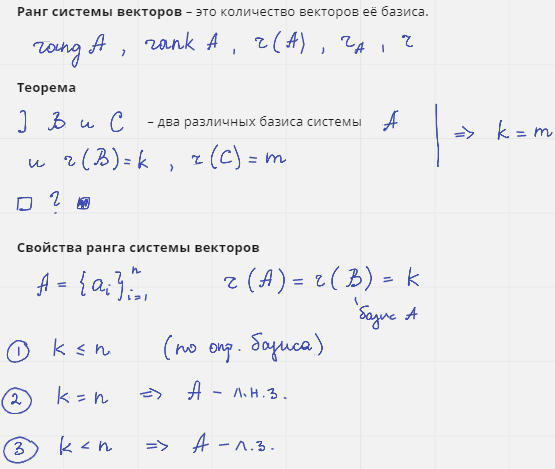 Ранг системы векторов – это количество векторов её базиса.
rang A , rank A , r(A) , r_A , r
Теорема
] B и C – два различных базиса системы A
и r(B)=k , r(C)=m => k=m
□ ? ■
Свойства ранга системы векторов
A = {a_i}_{i=1}^n r(A) = r(B) = k
базис A
① k ≤ n (по опр. базиса)
② k = n => A – л.н.з.
③ k < n => A – л.з.